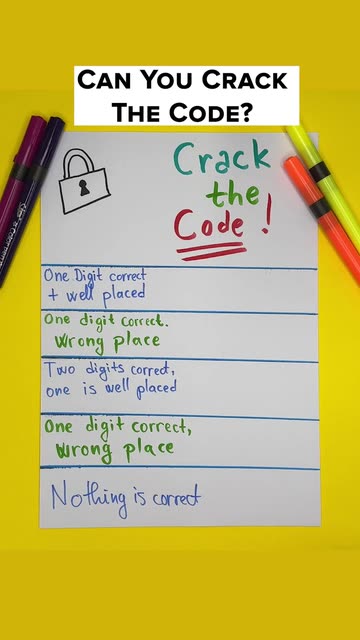 CAN YOU CRACK
THE CODE?
Crack
the
Code!
One Digit correct
+ well placed
One digit correct.
Wrong place
Two digits correct,
one is well placed
One digit correct,
Wrong place
Nothing is correct